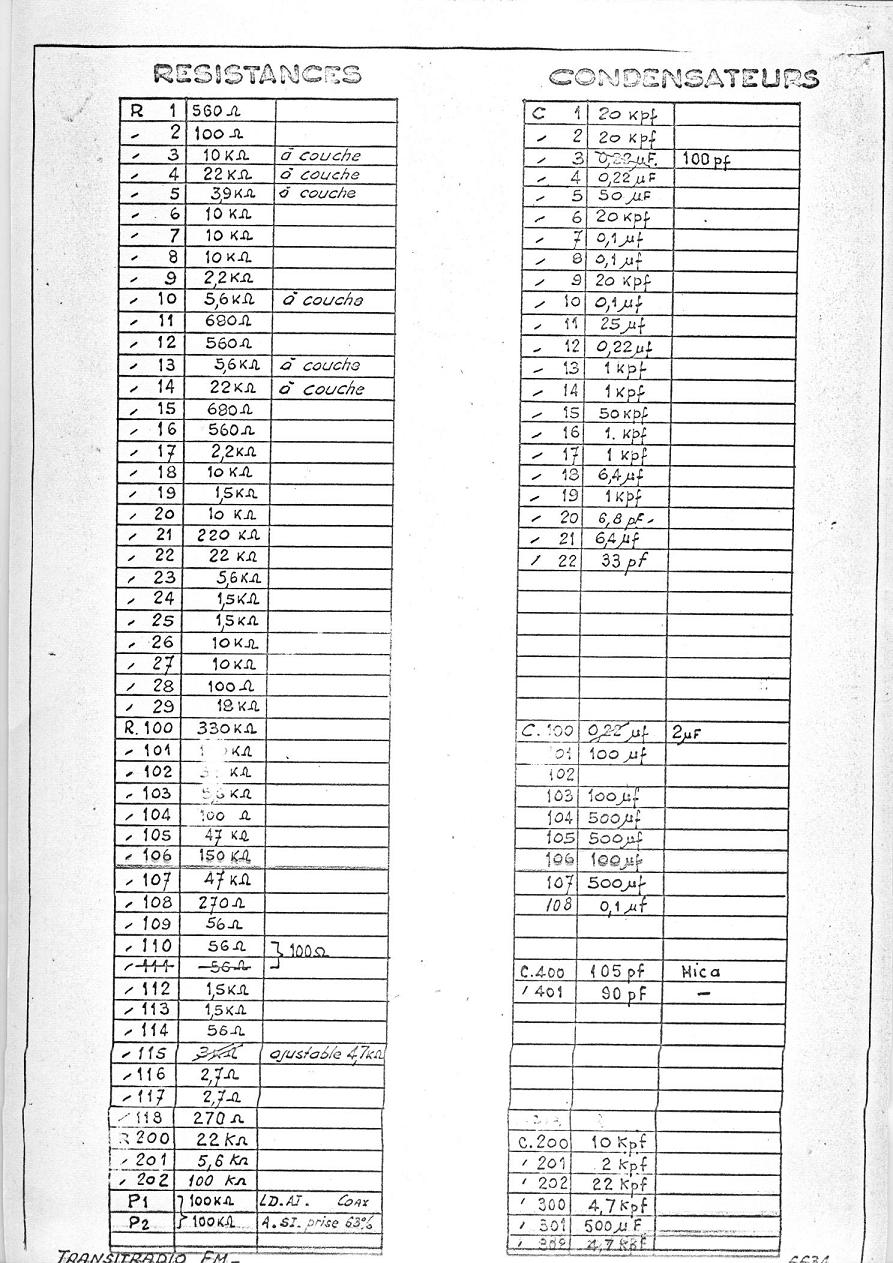 RESISTANCES
R 1 560 Ω
〃 2 100 Ω
〃 3 10 KΩ à couche
〃 4 22 KΩ à couche
〃 5 3,9 KΩ à couche
〃 6 10 KΩ
〃 7 10 KΩ
〃 8 10 KΩ
〃 9 2,2 KΩ
〃 10 5,6 KΩ à couche
〃 11 680 Ω
〃 12 560 Ω
〃 13 5,6 KΩ à couche
〃 14 22 KΩ à couche
〃 15 680 Ω
〃 16 560 Ω
〃 17 2,2 KΩ
〃 18 10 KΩ
〃 19 1,5 KΩ
〃 20 10 KΩ
〃 21 220 KΩ
〃 22 22 KΩ
〃 23 5,6 KΩ
〃 24 1,5 KΩ
〃 25 1,5 KΩ
〃 26 10 KΩ
〃 27 10 KΩ
〃 28 100 Ω
〃 29 18 KΩ
R.100 330 KΩ
〃 101 KΩ
〃 102 KΩ
〃 103 5,6 KΩ
〃 104 100 Ω
〃 105 47 KΩ
〃 106 150 KΩ
〃 107 47 KΩ
〃 108 270 Ω
〃 109 56 Ω
〃 110 56 Ω } 100 Ω
〃 111 56 Ω
〃 112 1,5 KΩ
〃 113 1,5 KΩ
〃 114 56 Ω
〃 115 ajustable 4,7 KΩ
〃 116 2,7 Ω
〃 117 2,7 Ω
〃 118 270 Ω
R 200 22 KΩ
〃 201 5,6 KΩ
〃 202 100 KΩ
P1 100 KΩ LD. AI. COAX
P2 100 KΩ A. SI. prise 63%
TRANSITRADIO FM_
CONDENSATEURS
C 1 20 Kpf
〃 2 20 Kpf
〃 3 0,22 µF. 100 pf
〃 4 0,22 µF
〃 5 50 µF
〃 6 20 Kpf
〃 7 0,1 µf
〃 8 0,1 µf
〃 9 20 Kpf
〃 10 0,1 µf
〃 11 25 µf
〃 12 0,22 µf
〃 13 1 Kpf
〃 14 1 Kpf
〃 15 50 Kpf
〃 16 1. Kpf
〃 17 1 Kpf
〃 18 6,4 µf
〃 19 1 Kpf
〃 20 6,8 pF-
〃 21 6,4 µf
〃 22 33 pf
C.100 0,22 µf 2 µF
101 100 µf
102
103 100 µf
104 500 µf
105 500 µf
106 100 µf
107 500 µf
108 0,1 µf
C.400 105 pf Mica
〃 401 90 pF —
C.200 10 Kpf
〃 201 2 Kpf
〃 202 22 Kpf
〃 300 4,7 Kpf
〃 301 500 µF
〃 302 4,7 Kpf
6634